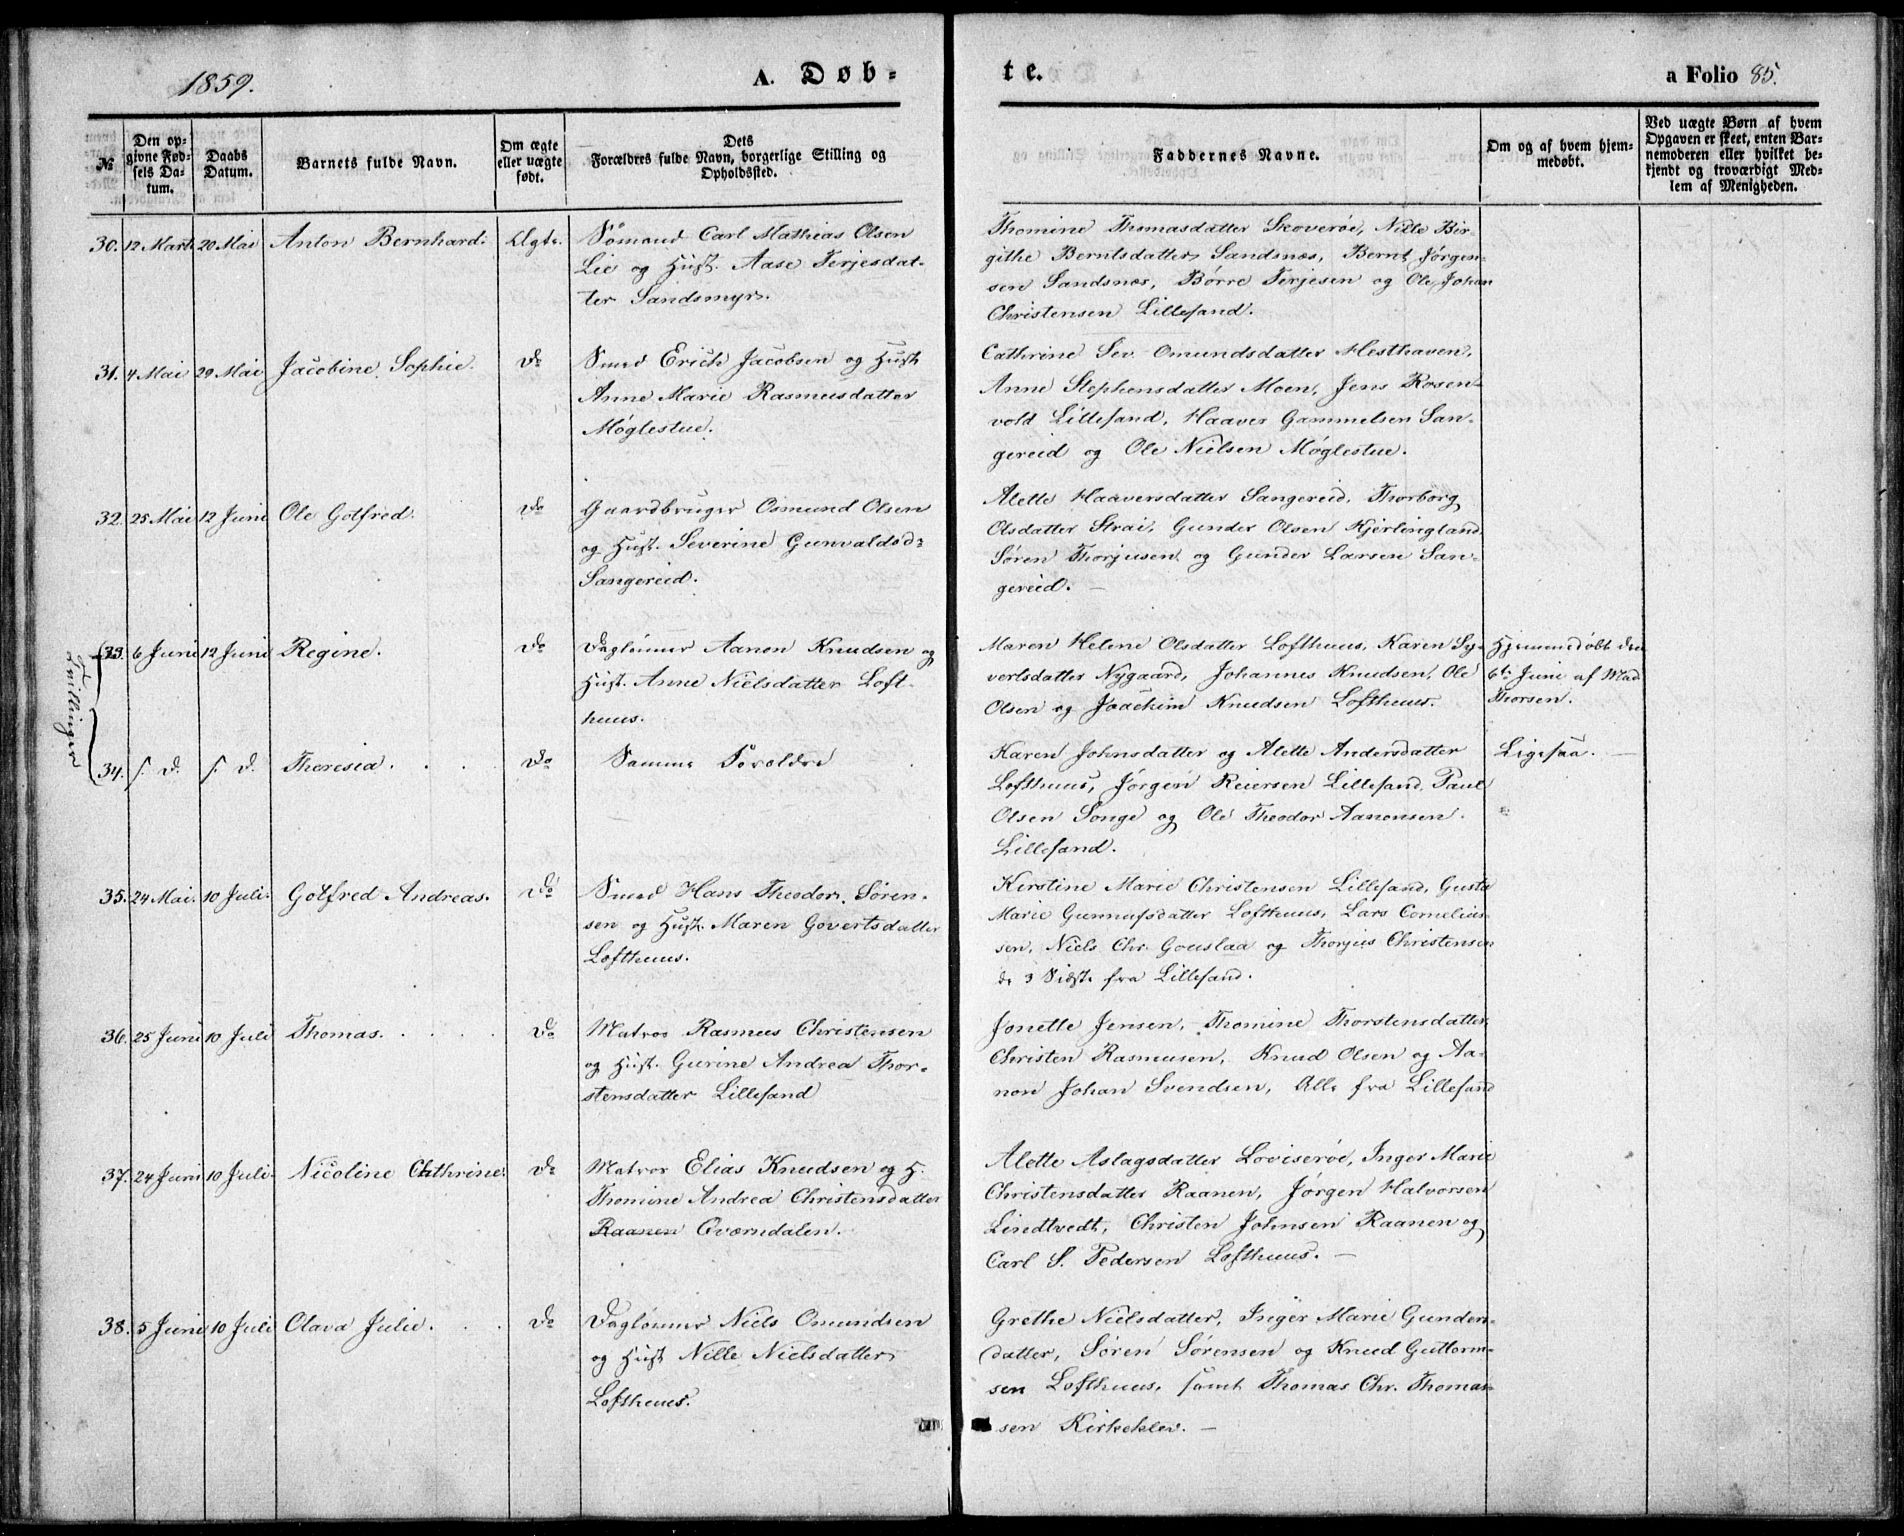 1859.
A. Døb-
te.
a Folio 85.
№
Den op-
givne Fød-
sels Da-
tum.
Daabs
Datum.
Barnets fulde Navn.
Om ægte
eller uægte
født.
Dets
Forældres fulde Navn, borgerlige Stilling og
Opholdssted.
Faddernes Navne.
Om og af hvem hjem-
medøbt.
Ved uægte Børn af hvem
Opgaven er skeet, enten Bar-
nemoderen eller hvilket be-
kjendt og troværdigt Med-
lem af Menigheden.
30. 12 Marts 20 Mai Anton Bernhard. Ægte.
Sømand Carl Mathias Olsen
Lie og Hust. Aase Terjesdat-
ter Sandsmyr.
Thomine Thomasdatter Skoverøe, Nille Bir-
githe Berntsdatter Sandsnæs, Bernt Jørgen-
sen Sandsnæs, Børre Terjesen og Ole Johan
Christensen Lillesand.
31. 4 Mai 29 Mai Jacobine Sophie. Do
Smed Erich Jacobsen og Hust
Anne Marie Rasmusdatter
Møglestue.
Cathrine Sev. Omundsdatter Hesthaven,
Anne Stephensdatter Moen, Jens Rosen-
vold Lillesand, Haaver Gammelsen San-
gereid og Ole Nielsen Møglestue.
32. 25 Mai 12 Juni Ole Gotfred. Do
Gaardbruger Osmund Olsen
og Hust. Severine Gunvaldsd-
Sangereid.
Alette Haaversdatter Sangereid, Thorborg
Olsdatter Strai, Gunder Olsen Kjerlingland,
Søren Thorjusen og Gunder Larsen San-
gereid. —
Trillinger
33. 6 Juni 12 Juni Regine. Do
Daglønner Aanon Knudsen og
Hust. Anne Nielsdatter Loft-
huus.
Maren Helene Olsdatter Lofthuus, Karen Sy-
vertsdatter Nygaard, Johannes Knudsen, Ole
Olsen og Joachim Knudsen Lofthuus.
Hjemmedøbt den
6te Juni af Mad
Thorsen.
34. s. D. s. D. Theresia. Do
Samme Forældre
Karen Johnsdatter og Alette Andersdatter
Lofthuus, Jørgen Reiersen Lillesand, Paul
Olsen Songe og Ole Theodor Aanonsen
Lillesand.
Ligesaa. —
35. 24 Mai. 10 Juli. Gotfred Andreas. Do
Smed Hans Theodor Søren-
sen og Hust. Maren Govertsdatter
Lofthuus.
Kirstine Marie Christensen Lillesand, Gusta
Marie Gunnufsdatter Lofthuus, Lars Cornelius-
sen, Niels Chr. Gouslaa og Thorjus Christensen
de 3 Sidste fra Lillesand.
36. 25 Juni 10 Juli Thomas. Do
Matros Rasmus Christensen
og Hust. Gurine Andrea Thor-
stensdatter Lillesand
Jonette Jensen, Thomine Thorstensdatter,
Christen Rasmusen, Knud Olsen og Aa-
non Johan Svendsen, Alle fra Lillesand
37. 24 Juni 10 Juli. Nicoline Cathrine. Do
Matros Elias Knudsen og H.
Thomine Andrea Christensdatter
Raanen Qværndalen.
Alette Aslagsdatter Loviserøe, Inger Marie
Christensdatter Raanen, Jørgen Halvorsen
Lindtvedt, Christen Johnsen Raanen og
Carl S. Pedersen Lofthuus. —
38. 5 Juni 10 Juli Olava Julie. Do
Daglønner Niels Omundsen
og Hust Nille Nielsdatter
Lofthuus.
Grethe Nielsdatter, Inger Marie Gunders-
datter, Søren Sørensen og Knud Guttorm-
sen Lofthuus, samt Thomas Chr. Thomas-
sen Kirkeklev. —